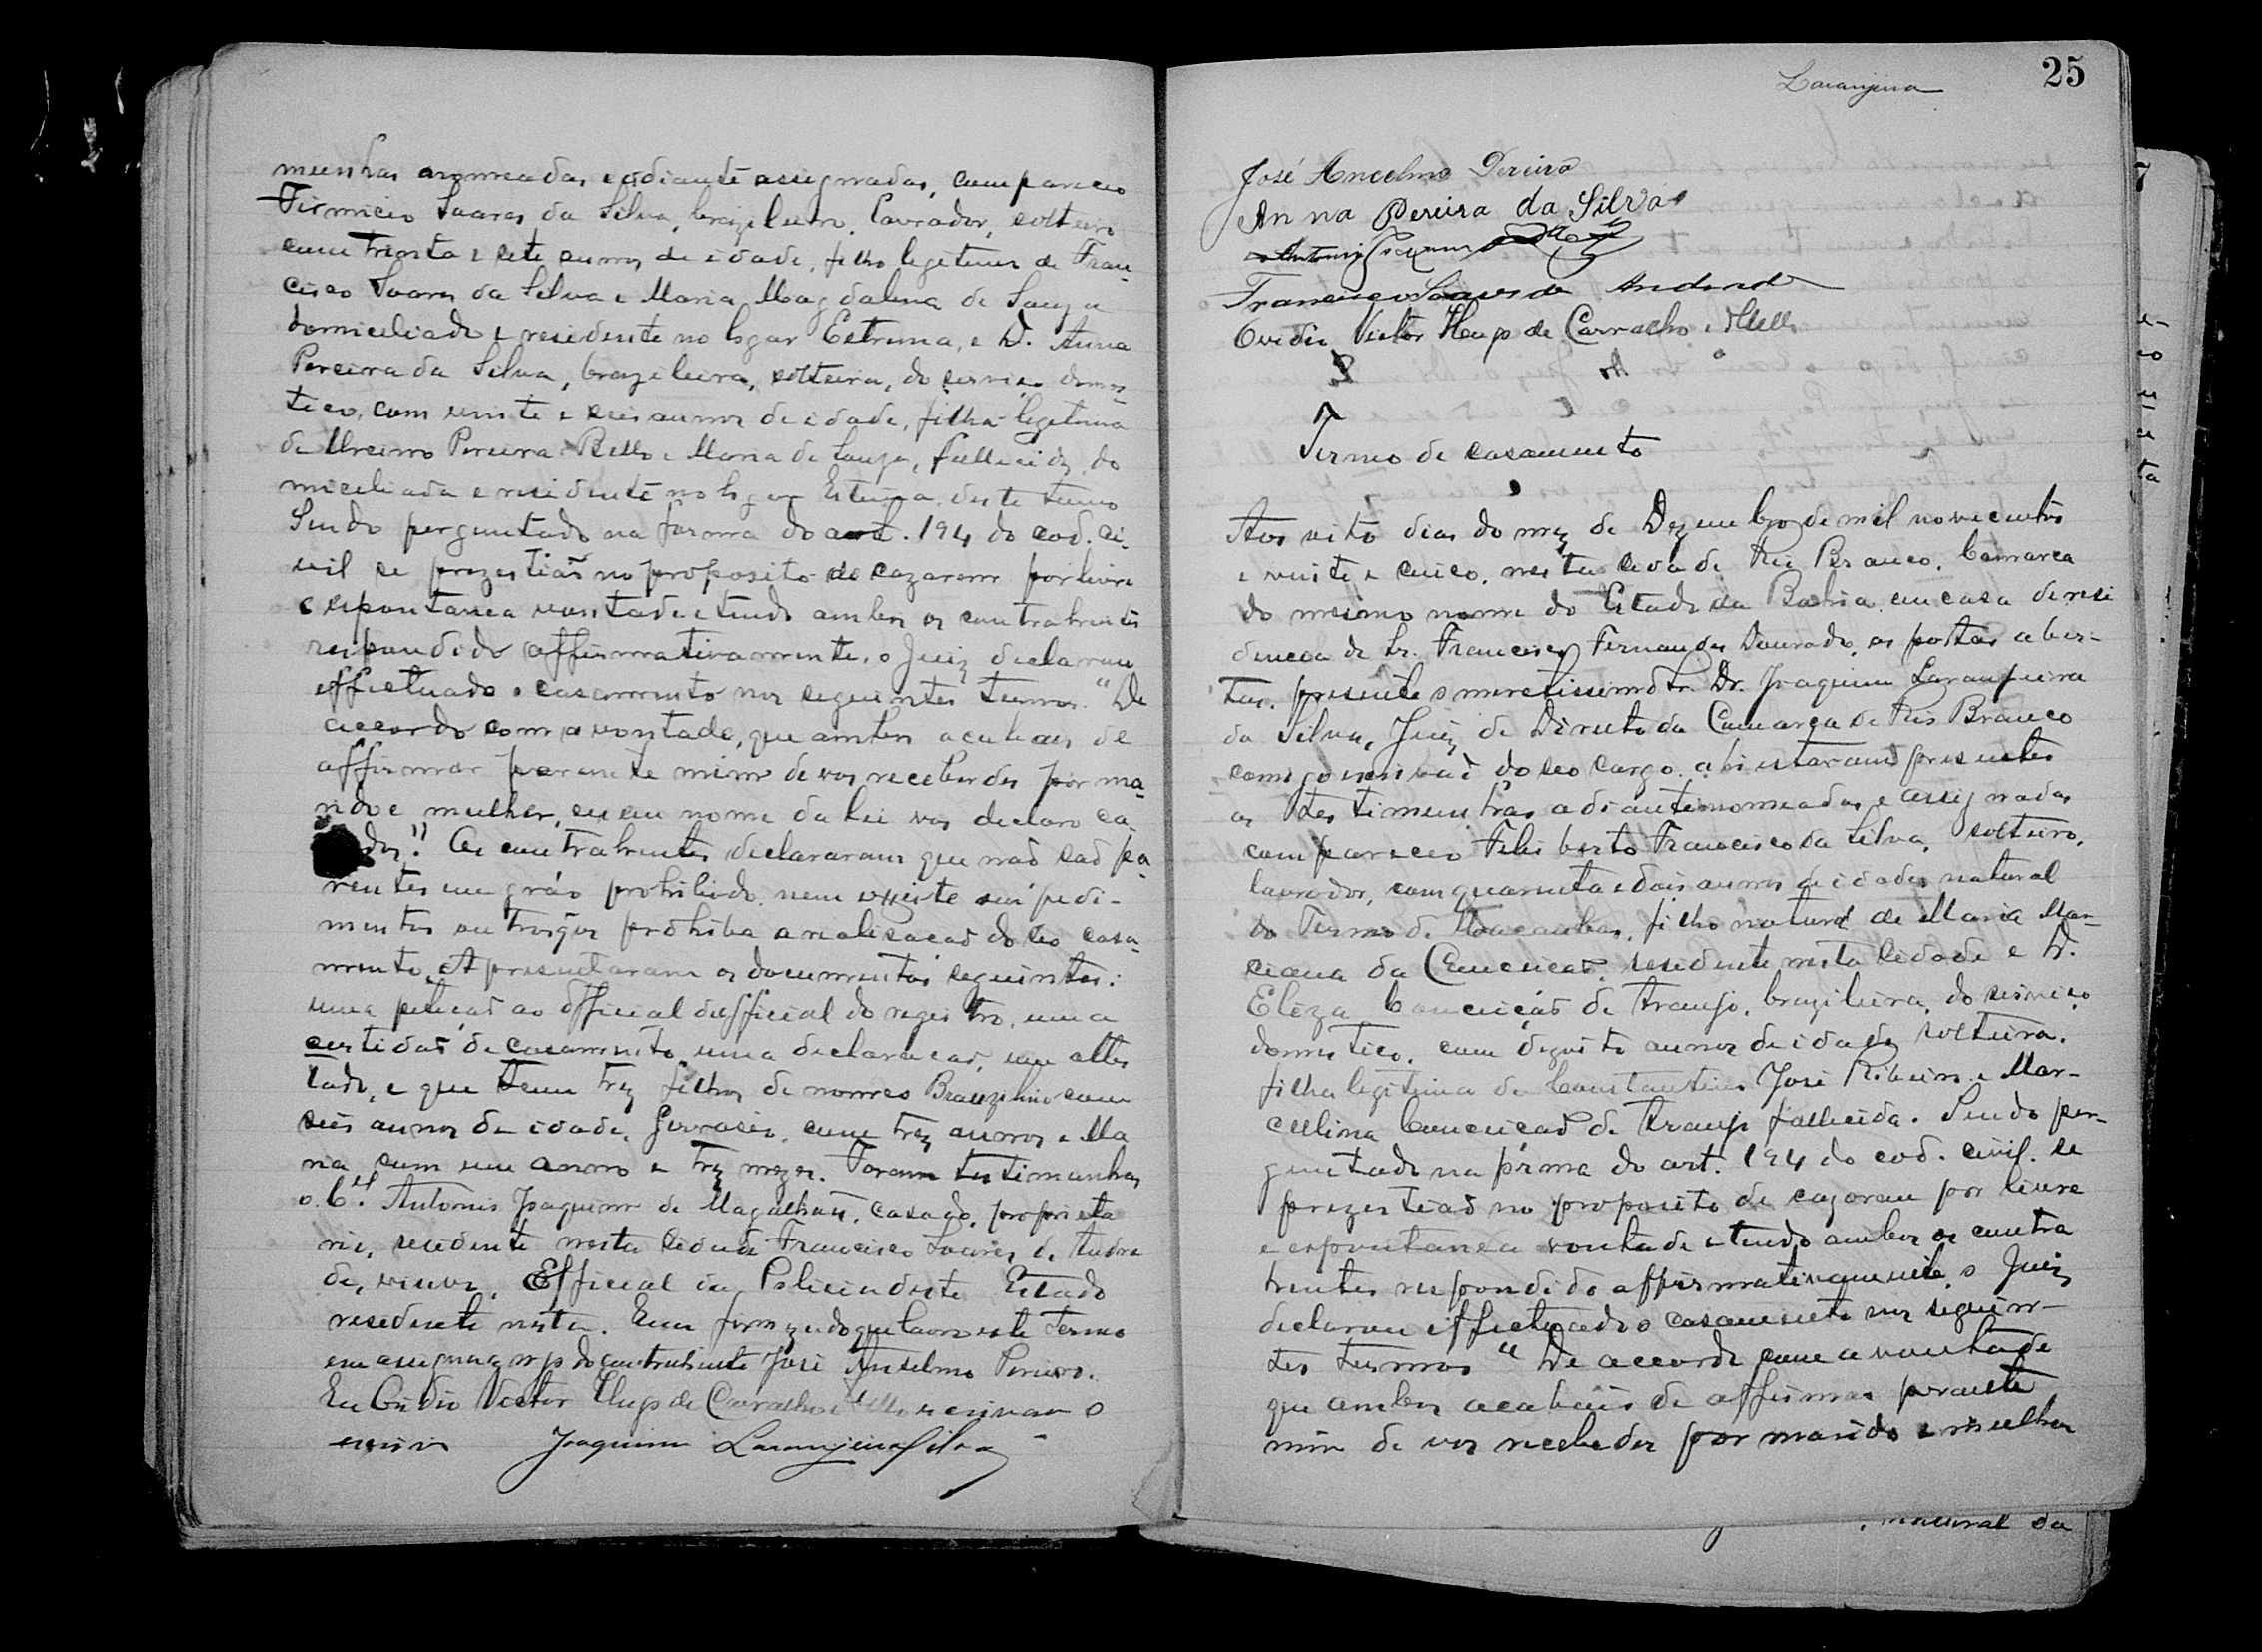 munhas anomeadas e adiante assignadas, compareceo
Firmicio Soares da Silva, brazileiro, lavrador, solteiro
com trinta e sete annos de idade, filho legitimo de Fran-
cisco Soares da Silva e Maria Magdalena de Souza
domiciliado e residente no logar Estrema, e D. Anna
Pereira da Silva, brazileira, solteira, do serviço domes-
tico, com vinte e seis annos de idade, filha legitima
de Pereira Bello e Maria de Souza, fallecida, do
miciliada e residente no logar Estrema deste termo
Sendo perguntado na forma do art. 194 do cod. ci-
vil se prezestião no proposito de cazarem por livre
e espontanea vontade e tendo ambos os contrahentes
respondido affirmativamente, o Juiz declarou
effectuado o casamento nos seguintes termos. "De
accordo com a vontade, que ambos acabais de
affirmar perante mim de vos receberdes por ma-
rido e mulher, eu em nome da lei vos declaro ca-
dos." Os contrahentes declararam que não são pa-
rentes em gráo prohibido, nem existe impedi-
mentos outros que prohiba a realisação do seo casa-
mento. Apresentaram os documentos seguintes:
uma petição ao official do registro, uma
certidão de casamento, uma declaração, um attes
tado, e que tem trez filhos de nomes Brauzilino com
seis annos de idade, Gervasio, com trez annos e Ma
ria com um anno e trez mezes. Foram testimunhas
o Cel. Antonio Joaquim de Magalhães, casado, proprieta
rio, residente nesta cidade Francisco Soares de Andra
de, viuvo, Official da Policia deste Estado
residente nesta. Em firmeza do que lavro este termo
em assigna a rogo do contrahente José Anselmo Pereira.
Eu Ovidio Victor Hugo de Carvalho e Mello escrivão o
escrivi Joaquim Laranjeira Silva
Laranjeira
25
José Ancelmo Pereira
Anna Pereira da Silva
Antonio Joaquim
Francisco Soares de Andrade
Ovidio Victor Hugo de Carvalho e Mello
Termo de casamento
Aos oito dias do mez de Dezembro de mil novecentos
e vinte e cinco, nesta cidade Rio Branco, Comarca
do mesmo nome do Estado da Bahia em casa de resi
dencia do Sr. Francisco Fernandes Dourado, as portas aber-
tas, presente o meretissimo Sr. Dr. Joaquim Laranjeira
da Silva, Juiz de Direito da Comarca de Rio Branco
comigo escrivão do seo cargo, ahi estaram presentes
as testimunhas adiante nomeadas e assignadas
compareceo Felisberto Francisco da Silva, solteiro,
lavrador, com quarenta e dois annos de idade, natural
do Termo de Macaubas, filho natural de Maria Mar-
ciana da Conceição, residente nesta cidade e D.
Eliza Conceição de Araujo, brazileira, do serviço
domestico, com dezoito annos de idade, solteira,
filha legitima de Constantino José Ribeiro e Mar-
cellina Conceição de Araujo fallecida. Sendo per-
guntado na forma do art. 194 do cod. civil se
prezestião no proposito de cazarem por livre
e espontanea vontade e tendo ambos os contra
hentes respondido affirmativamente, o Juiz
declarou effectuado o casamento nos seguin-
tes termos "De accordo com a vontade
que ambos acabais de affirmar perante
mim de vos receberdes por marido e mulher
natural da